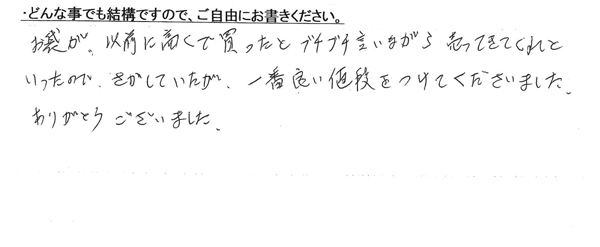 ・どんな事でも結構ですので、ご自由にお書きください。
お袋が、以前に高くで買ったと ブチブチ言いながら 売ってきてくれと
いったので、さがしていたが、一番良い値段をつけてくださいました。
ありがとう ございました。